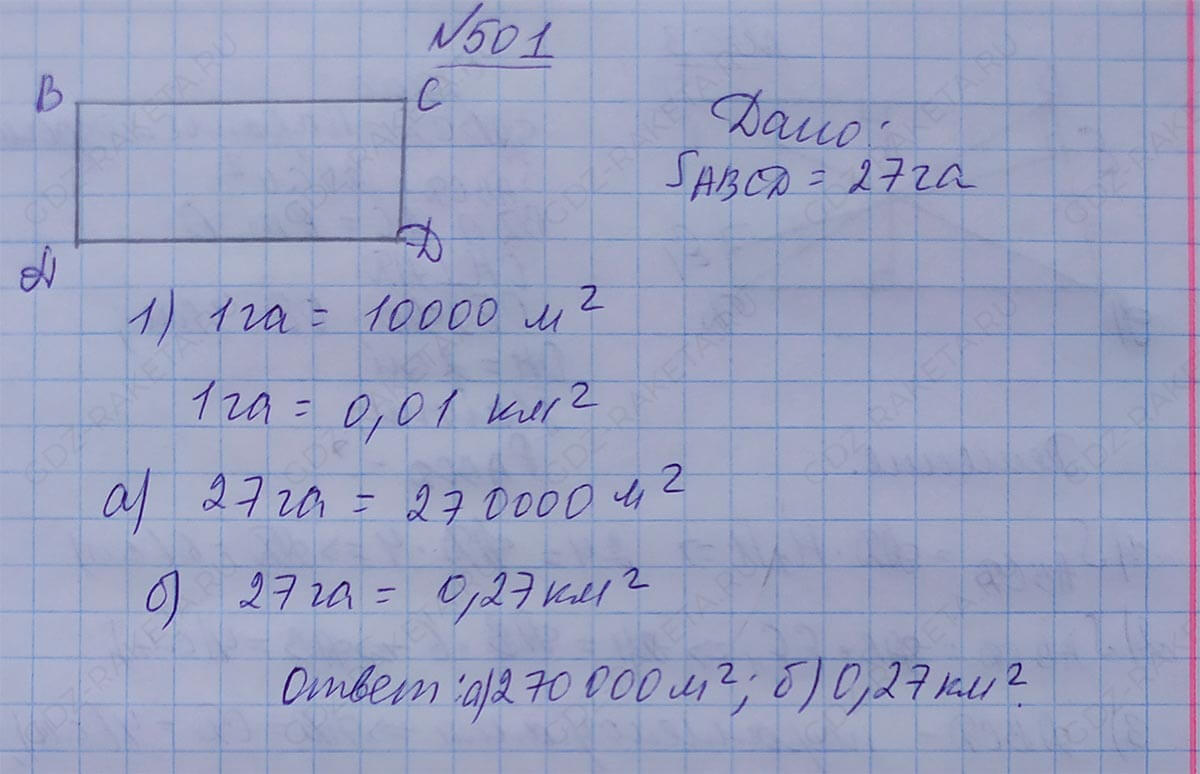 №501
B C
Дано:
S ABCD = 27га
A D
1) 1га = 10000 м²
1га = 0,01 км²
а) 27га = 270000 м²
б) 27га = 0,27км²
Ответ: а) 270000м²; б) 0,27км².
GDZ-RAKETA.RU